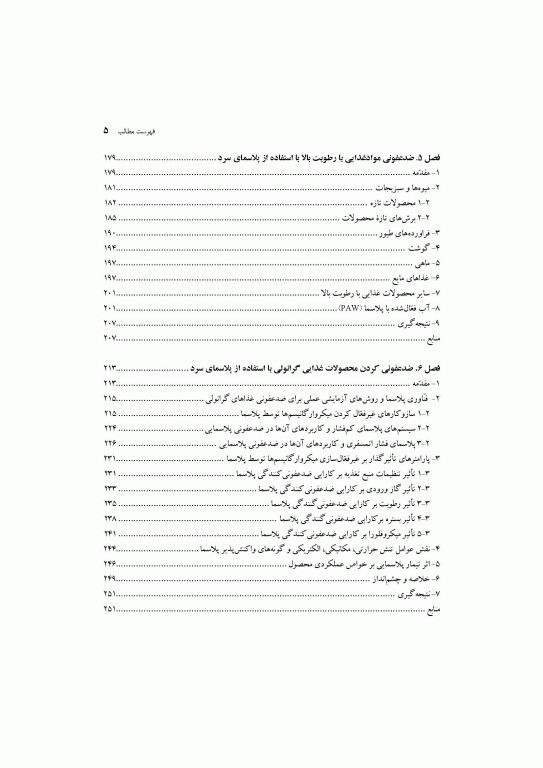 فهرست مطالب ۵
فصل ۵. ضدعفونی موادغذایی با رطوبت بالا با استفاده از پلاسمای سرد.......................................۱۷۹
۱- مقدمه...........................................................................................................................۱۷۹
۲- میوه‌ها و سبزیجات.......................................................................................................۱۸۱
۲-۱ محصولات تازه..........................................................................................................۱۸۲
۲-۲ برش‌های تازهٔ محصولات..........................................................................................۱۸۵
۳- فراورده‌های طیور..........................................................................................................۱۹۰
۴- گوشت.........................................................................................................................۱۹۴
۵- ماهی...........................................................................................................................۱۹۷
۶- غذاهای مایع................................................................................................................۱۹۷
۷- سایر محصولات غذایی با رطوبت بالا...........................................................................۲۰۱
۸- آب فعال‌شده با پلاسما (PAW)...................................................................................۲۰۱
۹- نتیجه‌گیری..................................................................................................................۲۰۷
منابع................................................................................................................................۲۰۷
فصل ۶. ضدعفونی کردن محصولات غذایی گرانولی با استفاده از پلاسمای سرد.............................۲۱۳
۱- مقدمه...........................................................................................................................۲۱۳
۲- فنّاوری پلاسما و روش‌های آزمایشی عملی برای ضدعفونی غذاهای گرانولی..................................۲۱۵
۲-۱ سازوکارهای غیرفعال کردن میکروارگانیسم‌ها توسط پلاسما................................................۲۱۵
۲-۲ سیستم‌های پلاسمای کم‌فشار و کاربردهای آن‌ها در ضدعفونی پلاسمایی..................................۲۲۴
۲-۳ پلاسمای فشار اتمسفری و کاربردهای آن‌ها در ضدعفونی پلاسمایی.......................................۲۲۶
۳- پارامترهای تأثیرگذار بر غیرفعال‌سازی میکروارگانیسم‌ها توسط پلاسما...........................................۲۳۱
۳-۱ تأثیر تنظیمات منبع تغذیه بر کارایی ضدعفونی‌کنندگی پلاسما..............................................۲۳۱
۳-۲ تأثیر گاز ورودی بر کارایی ضدعفونی‌کنندگی پلاسما......................................................۲۳۳
۳-۳ تأثیر رطوبت بر کارایی ضدعفونی‌کنندگی پلاسما..........................................................۲۳۵
۳-۴ تأثیر بستره بر کارایی ضدعفونی‌کنندگی پلاسما...........................................................۲۳۸
۳-۵ تأثیر میکروفلورا بر کارایی ضدعفونی‌کنندگی پلاسما......................................................۲۴۱
۴- نقش عوامل تنش حرارتی، مکانیکی، الکتریکی و گونه‌های واکنش‌پذیر پلاسما.................................۲۴۴
۵- اثر تیمار پلاسمایی بر خواص عملکردی محصول..................................................................۲۴۶
۶- خلاصه و چشم‌انداز........................................................................................................۲۴۹
۷- نتیجه‌گیری..................................................................................................................۲۵۱
منابع................................................................................................................................۲۵۱